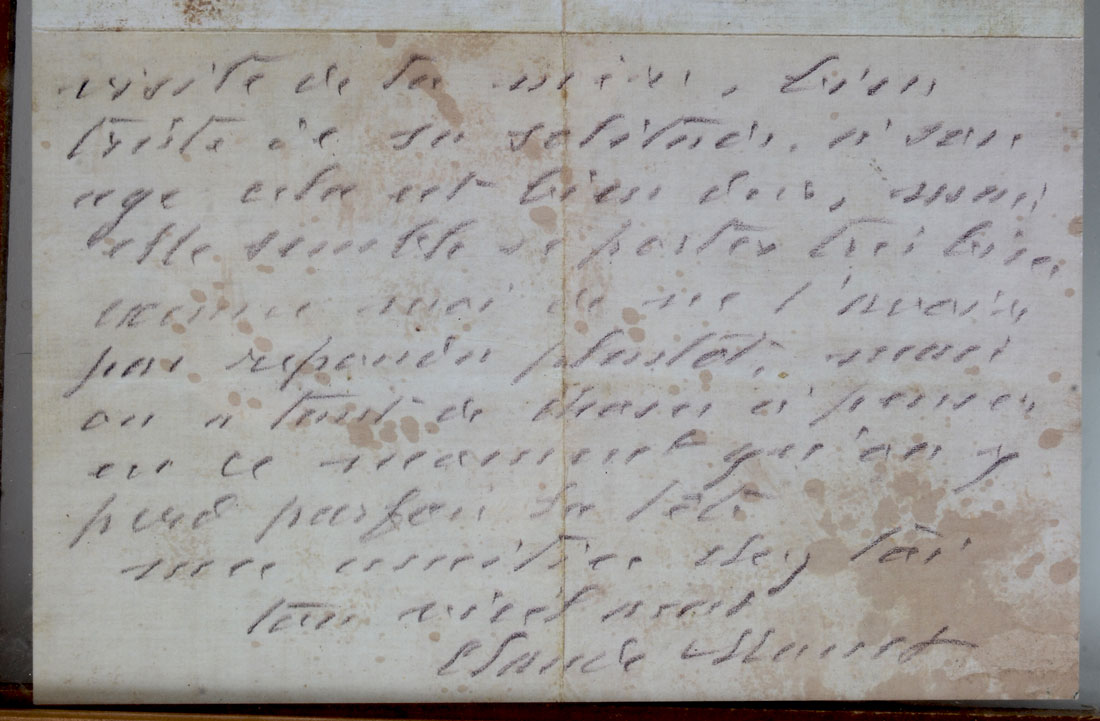 visite de ta mère, bien
triste de sa solitude. à son
age cela est bien dur, mais
elle semble se porter très bien.
excuse moi de ne t'avoir
pas repondu plustôt, mais
on a tant de choses à penser
en ce moment qu'on y
perd parfois la tête
mes amitiés chez toi
ton vieil ami
Claude Monet